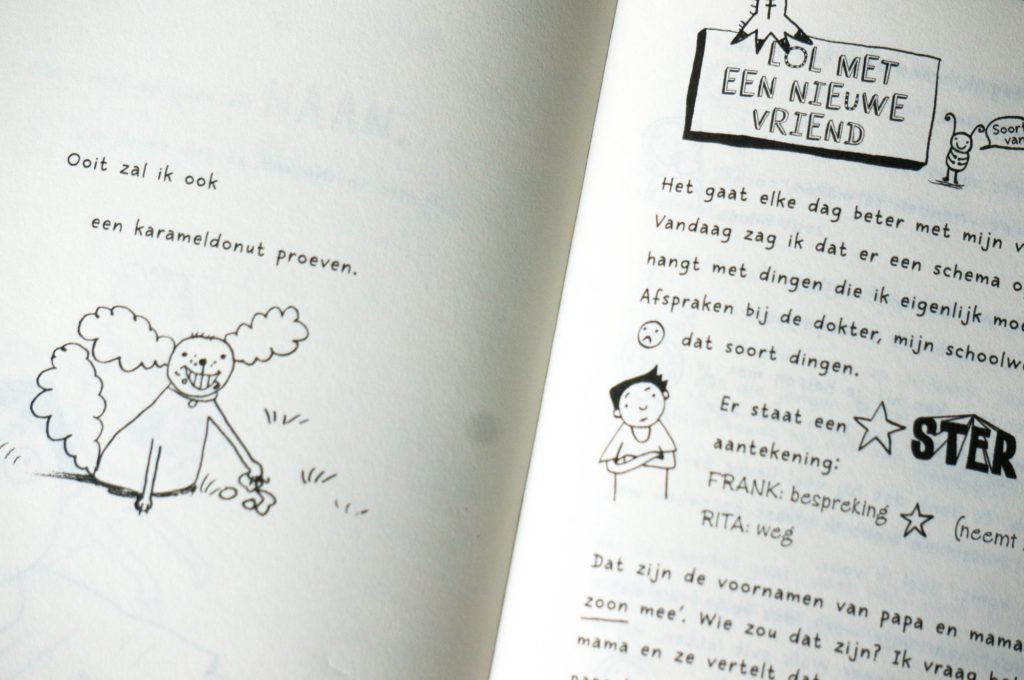 Ooit zal ik ook
een karameldonut proeven.
LOL MET
EEN NIEUWE
VRIEND
Soort
van
Het gaat elke dag beter met mijn
Vandaag zag ik dat er een schema
hangt met dingen die ik eigenlijk
Afspraken bij de dokter, mijn
dat soort dingen.
Er staat een STER
aantekening:
FRANK: bespreking (neemt
RITA: weg
Dat zijn de voornamen van papa en mama
zoon mee'. Wie zou dat zijn? Ik vraag
mama en ze vertelt dat